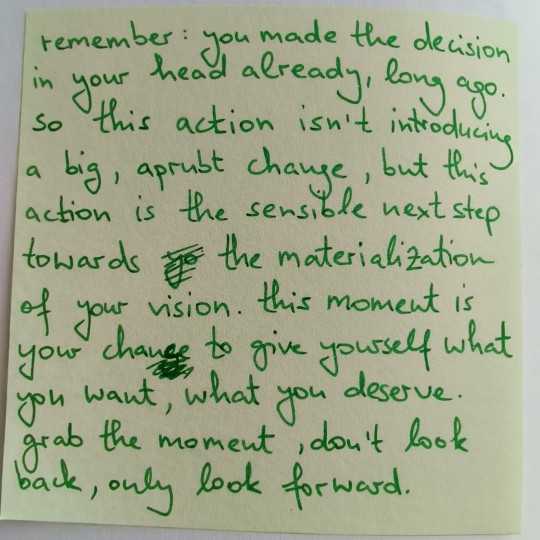 remember: you made the decision
in your head already, long ago.
so this action isn't introducing
a big, aprubt change, but this
action is the sensible next step
towards the materialization
of your vision. this moment is
your chance to give yourself what
you want, what you deserve.
grab the moment, don't look
back, only look forward.